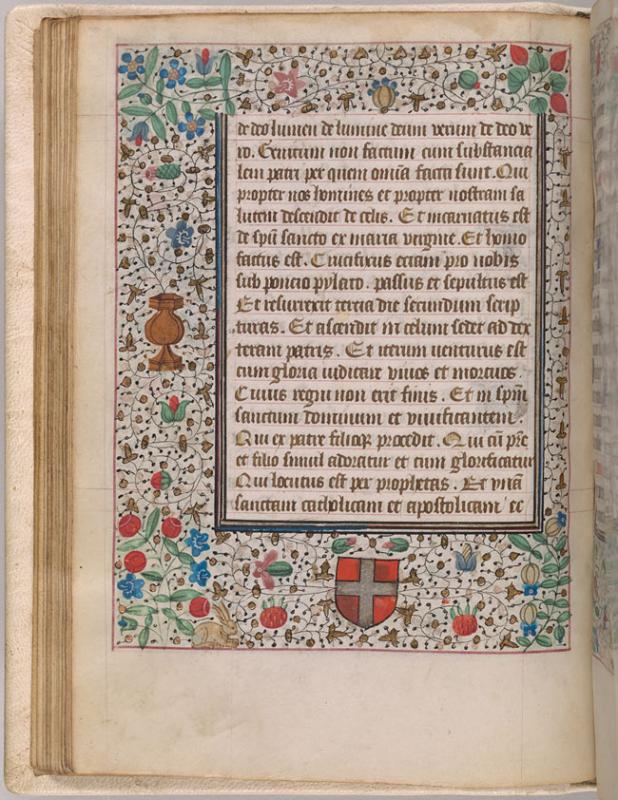 de deo lumen de lumine deum verum de deo ve
ro. Genitum non factum cum substancia
lem patri per quem omnia facta sunt. Qui
propter nos homines et propter nostram sa
lutem descendit de celis. Et incarnatus est
de spũ sancto ex maria virgine. Et homo
factus est. Crucifixus eciam pro nobis
sub poncio pylato. passus et sepultus est
Et resurrexit tercia die secundum scrip
turas. Et ascendit in celum sedet ad dex
teram patris. Et iterum venturus est
cum gloria iudicare vivos et mortuos.
Cuius regni non erit finis. Et in spm̃
sanctum dominum et vivificantem.
Qui ex patre filioqꝫ procedit. Qui cũ pr̃e
et filio simul adoratur et cum glorificatur
Qui locutus est per prophetas. Et vnã
sanctam catholicam et apostolicam ec